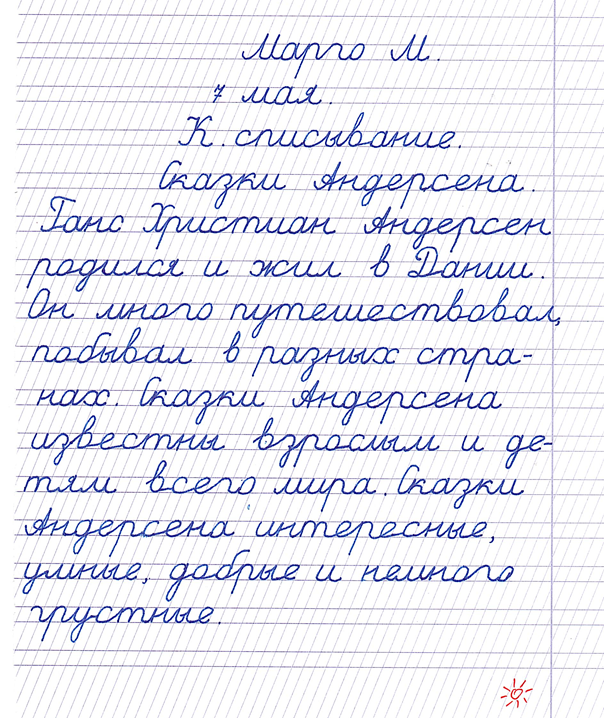 Марго М.
7 мая.
К. списывание.
Сказки Андерсена.
Ганс Христиан Андерсен
родился и жил в Дании.
Он много путешествовал,
побывал в разных стра-
нах. Сказки Андерсена
известны взрослым и де-
тям всего мира. Сказки
Андерсена интересные,
умные, добрые и немного
грустные.